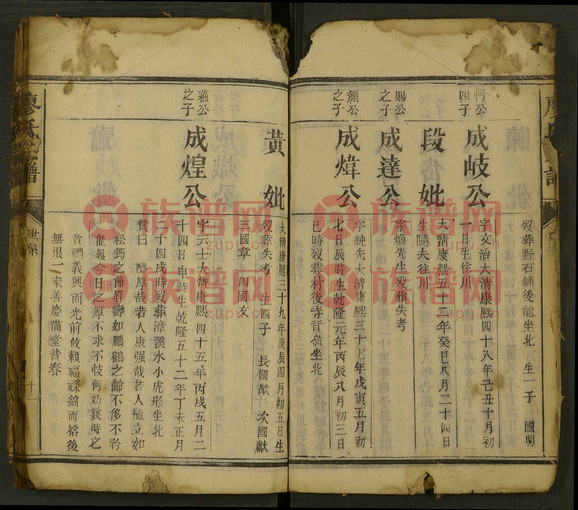 殁葬縣石鋪後龍坐北 生一子 國明
柯公
四子
成岐公
字文治大清康熙四十八年己丑十月初
一日生往川
段妣
大清康熙五十二年癸巳八月二十四日
生隨夫往川
賜公
之子
成達公
字 先生殁葬失考
顏公
之子
成煒公
字 先大清康熙三十七年戊寅五月初
七日辰時生乾隆元年丙辰八月初三日
巳時殁葬村後寺背嶺坐北
黄妣
大清康熙三十九年庚辰四月初五日生
殁葬失考 生四子 長國猷 次國獻
三國章 四國文
蘊公
之子
成煌公
字六士大清康熙四十五年丙戌五月二
十四日申時生乾隆五十二年丁未正月
二十四戌時殁葬漳溪水小虎形坐北
贊曰 醇厚哉若人康强哉若人植立如
松筠之節眉壽如鵬鶴之齡不侈不矜
能 今日之厚不求不忮何妨 時之
貧 義興而光前攸賴福祿綿而裕後
無垠一家善慶滿堂皆春
廖氏 譜
世系
族谱网